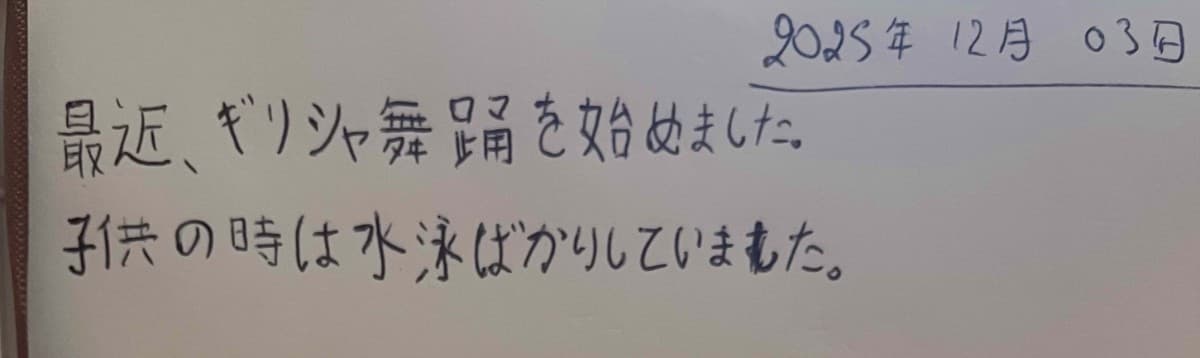 2025年 12月 03日
最近、ギリシャ舞踊を始めました。
子供の時は水泳ばかりしていました。